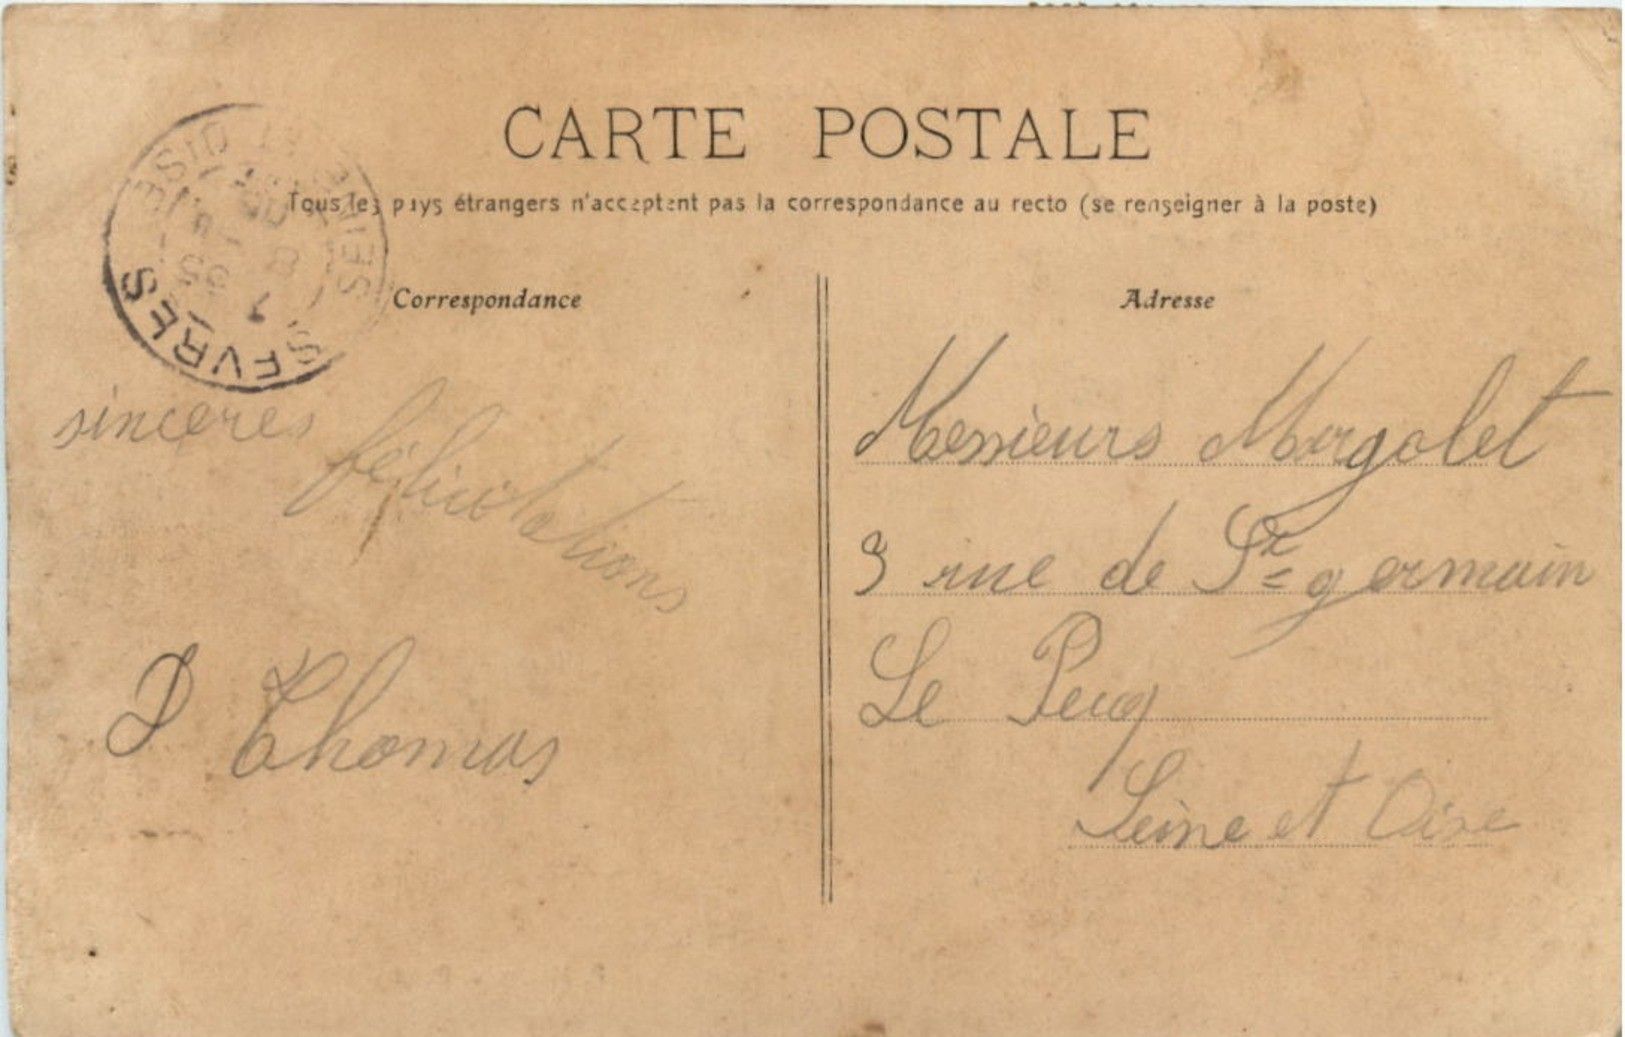 CARTE POSTALE
Tous les pays étrangers n'acceptent pas la correspondance au recto (se renseigner à la poste)
SEVRES
SEINE ET OISE
Correspondance
sincères
félicitations
D Thomas
Adresse
Messieurs Margolet
3 rue de St germain
Le Pecq
Seine et Oise